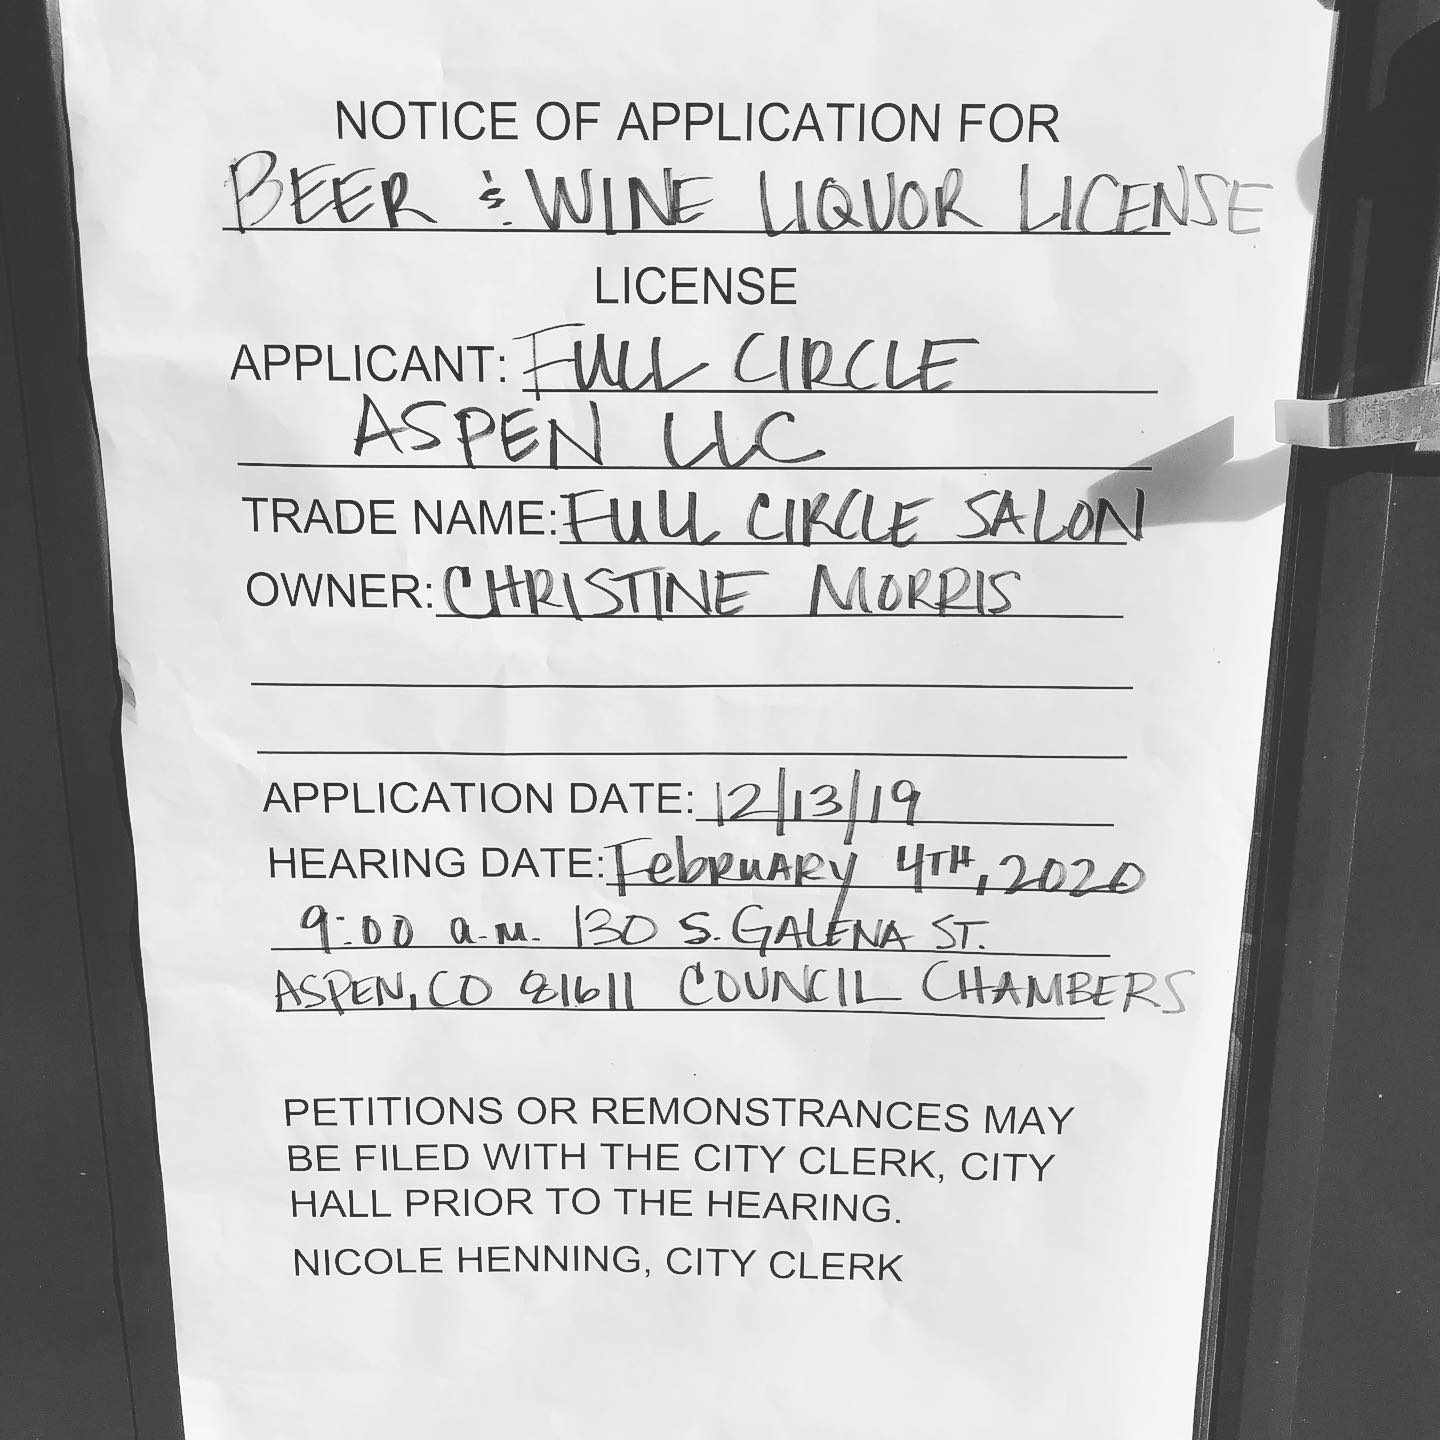 NOTICE OF APPLICATION FOR
BEER & WINE LIQUOR LICENSE
LICENSE
APPLICANT: FULL CIRCLE
ASPEN LLC
TRADE NAME: FULL CIRCLE SALON
OWNER: CHRISTINE MORRIS
APPLICATION DATE: 12/13/19
HEARING DATE: February 4TH, 2020
9:00 a.m. 130 S. GALENA ST.
ASPEN, CO 81611 COUNCIL CHAMBERS
PETITIONS OR REMONSTRANCES MAY
BE FILED WITH THE CITY CLERK, CITY
HALL PRIOR TO THE HEARING.
NICOLE HENNING, CITY CLERK